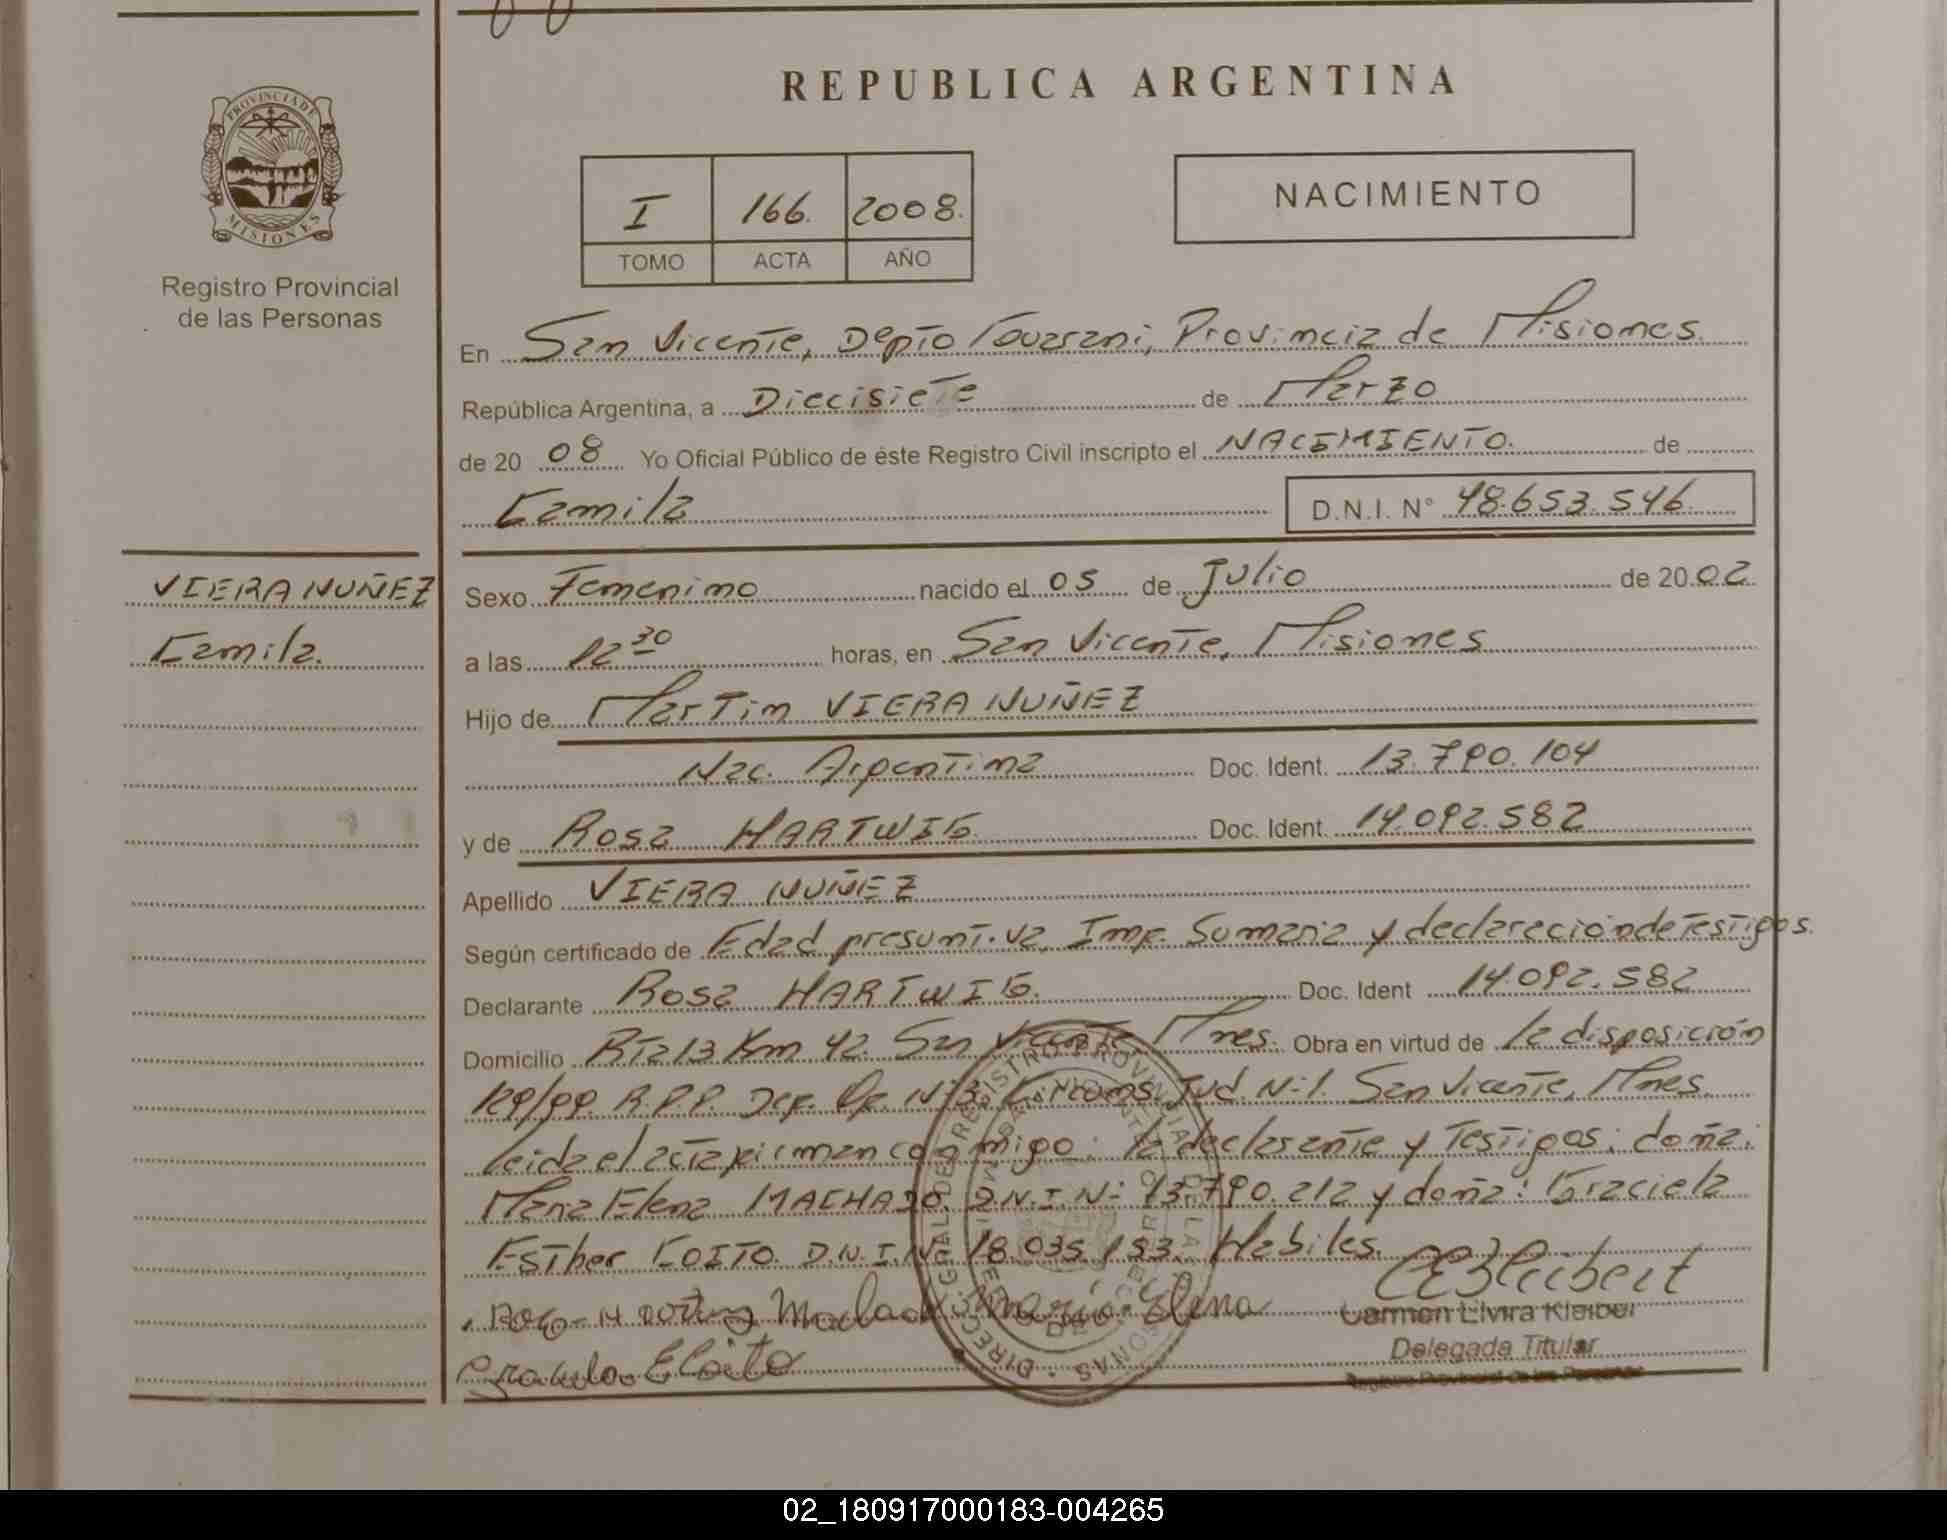 REPUBLICA ARGENTINA
PROVINCIA DE
MISIONES
Registro Provincial
de las Personas
I 166. 2008.
TOMO ACTA AÑO
NACIMIENTO
En San Vicente, Depto Guarani, Provincia de Misiones.
República Argentina, a Diecisiete de Marzo
de 20 08 Yo Oficial Público de éste Registro Civil inscripto el NACIMIENTO. de
Camila D.N.I. N° 48.653.546
VIERA NUÑEZ
Camila.
Sexo Femenino nacido el 05 de Julio de 20 02
a las 12 30 horas, en San Vicente, Misiones
Hijo de Martin VIERA NUÑEZ
Nac. Argentina Doc. Ident. 13.790.104
y de Rosa HARTWIG Doc. Ident. 14.092.582
Apellido VIERA NUÑEZ
Según certificado de Edad presuntiva, Inf. Sumaria y declaración de Testigos.
Declarante Rosa HARTWIG. Doc. Ident 14.092.582
Domicilio Rta 13 Km 42. San Vicente, Mnes. Obra en virtud de la disposición
129/99. R.P.P. Def. Of. N: 3, Circuns. Jud. N: 1. San Vicente, Mnes.
leida el acta firman conmigo: la declarante y Testigos: doña:
Maria Elena MACHADO. D.N.I. N: 13.790.212 y doña: Graciela
Esther COITO. D.N.I. N: 18.035.153. Habiles.
Machado Maria Elena
Carmen Elvira Kleiber
Delegada Titular
Registro Provincial de las Personas
02_180917000183-004265